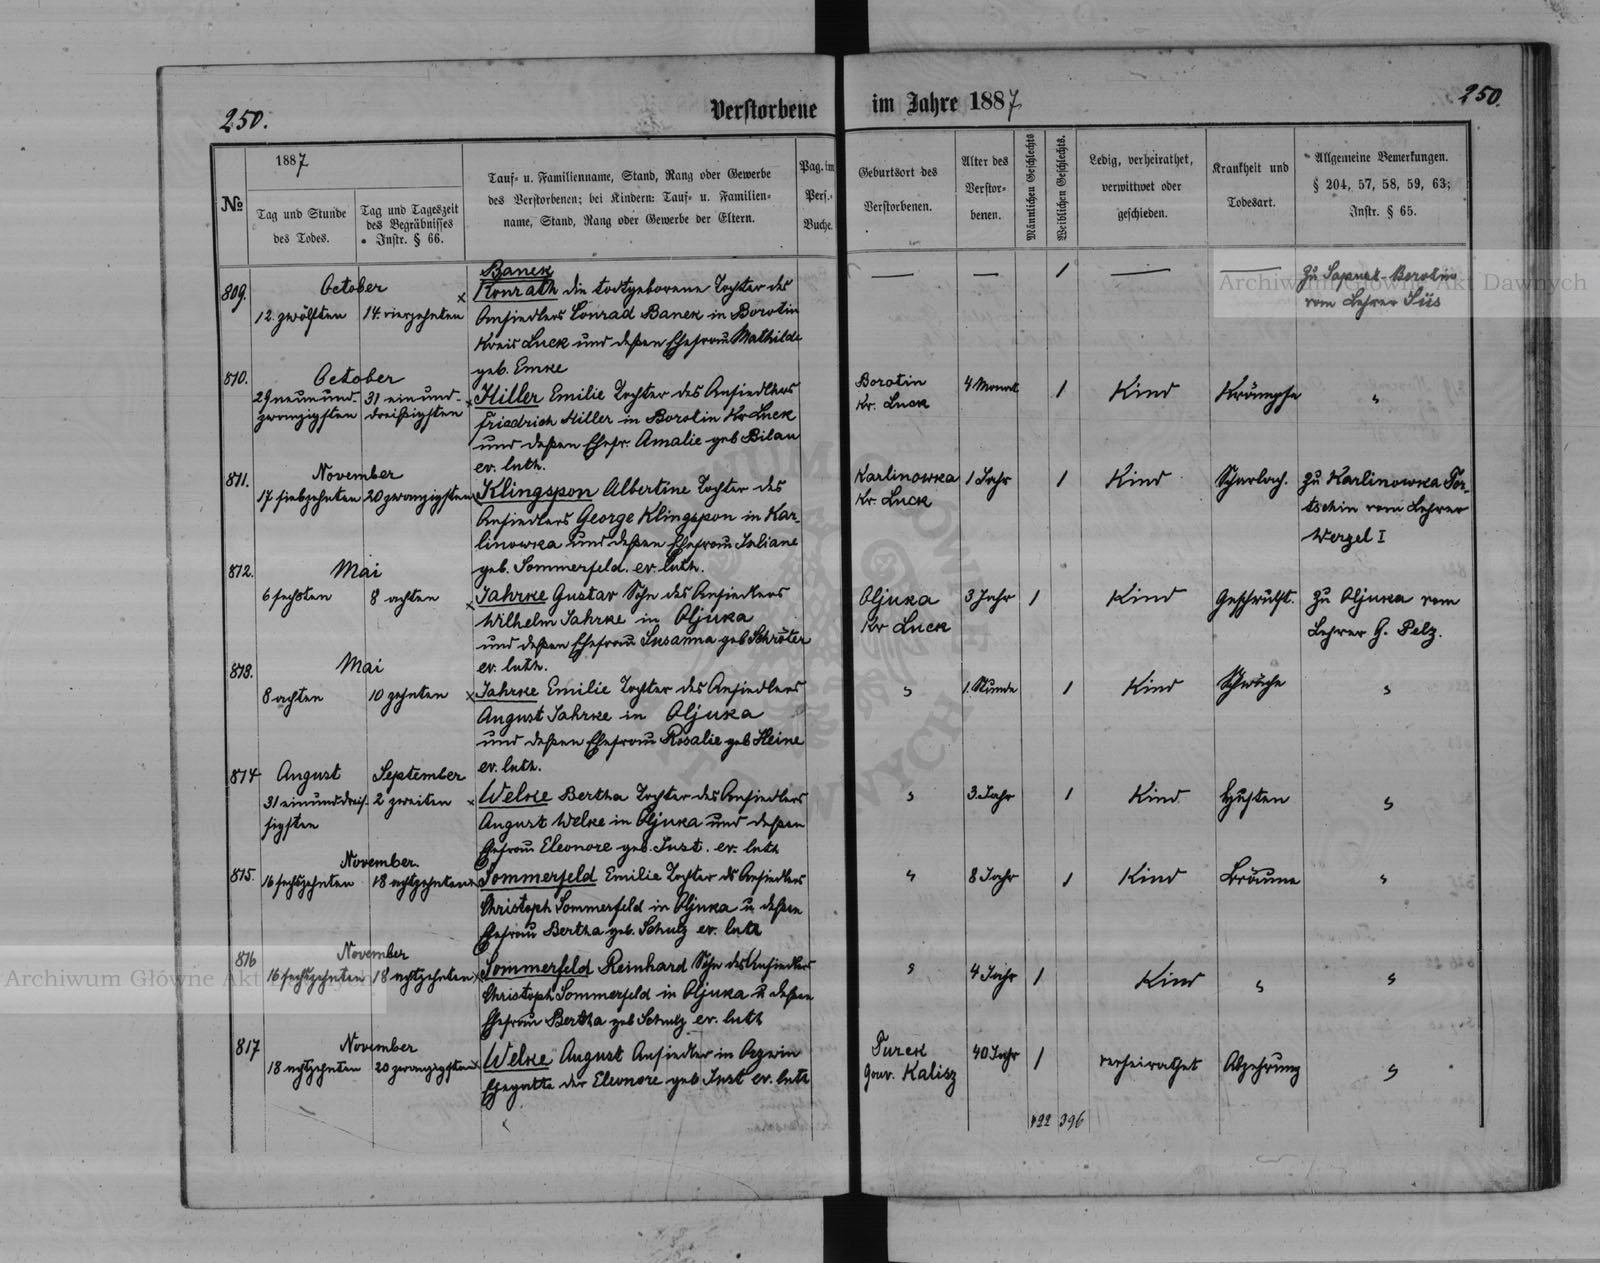 250.
Verstorbene im Jahre 1887
250.
№
1887
Tag und Stunde
des Todes.
Tag und Tageszeit
des Begräbnisses
Instr. § 66.
Tauf- u. Familienname, Stand, Rang oder Gewerbe
des Verstorbenen; bei Kindern: Tauf- u. Familien-
name, Stand, Rang oder Gewerbe der Eltern.
Pag. im
Pers.-
Buche.
Geburtsort des
Verstorbenen.
Alter des
Verstor-
benen.
Männlichen Geschlechts
Weiblichen Geschlechts.
Ledig, verheirathet,
verwittwet oder
geschieden.
Krankheit und
Todesart.
Allgemeine Bemerkungen.
§ 204, 57, 58, 59, 63;
Instr. § 65.
809.
October
12. zwölften
14. vierzehnten
x
Banek
Konrath die todtgeborene Tochter des
Ansiedlers Conrad Banek in Borotin
Kreis Luck und deßen Ehefrau Mathilde
geb. Emke
— — 1 — —
zu Sapust-Borotin
vom Lehrer Süs
810.
October
29 neunund-
zwanzigsten
31 einund-
dreißigsten
x
Hiller Emilie Tochter des Ansiedlers
Friedrich Hiller in Borotin Kr Luck
und deßen Ehefr. Amalie geb Bilau
ev. luth.
Borotin
Kr. Luck
4 Monat
1
Kind
Krämpfe
"
811.
November
17 siebzehnten
20 zwanzigsten
Klingspon Albertine Tochter des
Ansiedlers George Klingspon in Kar-
linowka und deßen Ehefrau Juliane
geb. Sommerfeld. ev. luth.
Karlinowka
Kr. Luck
1 Jahr
1
Kind
Scharlach.
zu Karlinowka Tor-
tschin vom Lehrer
Werzel I
812.
Mai
6 sechsten
8 achten
x
Jahrke Gustav Sohn des Ansiedlers
Wilhelm Jahrke in Oljuka
und deßen Ehefrau Susanna geb Schröter
ev. luth.
Oljuka
Kr Luck
3 Jahr
1
Kind
Geschwulst.
zu Oljuka vom
Lehrer G. Pelz.
813.
Mai
8 achten
10 zehnten
x
Jahrke Emilie Tochter des Ansiedlers
August Jahrke in Oljuka
und deßen Ehefrau Rosalie geb Heine
ev. luth.
"
1. Stunde
1
Kind
Schwäche
"
814
August
31 einunddreis-
sigsten
September
2 zweiten
x
Welke Bertha Tochter des Ansiedlers
August Welke in Oljuka und deßen
Ehefrau Eleonore geb. Just. ev. luth
"
3 Jahr
1
Kind
Husten
"
815.
November.
16 sechszehnten
18 achtzehnten
x
Sommerfeld Emilie Tochter ds Ansiedlers
Christoph Sommerfeld in Oljuka u deßen
Ehefrau Bertha geb. Schulz ev. luth
"
8 Jahr
1
Kind
Bräune
"
816
November
16 sechszehnten
18 achtzehnten
x
Sommerfeld Reinhard Sohn des Ansiedlers
Christoph Sommerfeld in Oljuka u deßen
Ehefrau Bertha geb Schulz ev. luth
"
4 Jahr
1
Kind
"
"
817
November
18 achtzehnten
20 zwanzigsten
x
Welke August Ansiedler in
Ehegatte der Eleonore geb Just ev. luth
Turek
Gouv. Kalisz
40 Jahr
1
verheirathet
Abzehrung
"
422 396
Archiwum Główne Akt Dawnych
Archiwum Główne Akt Dawnych